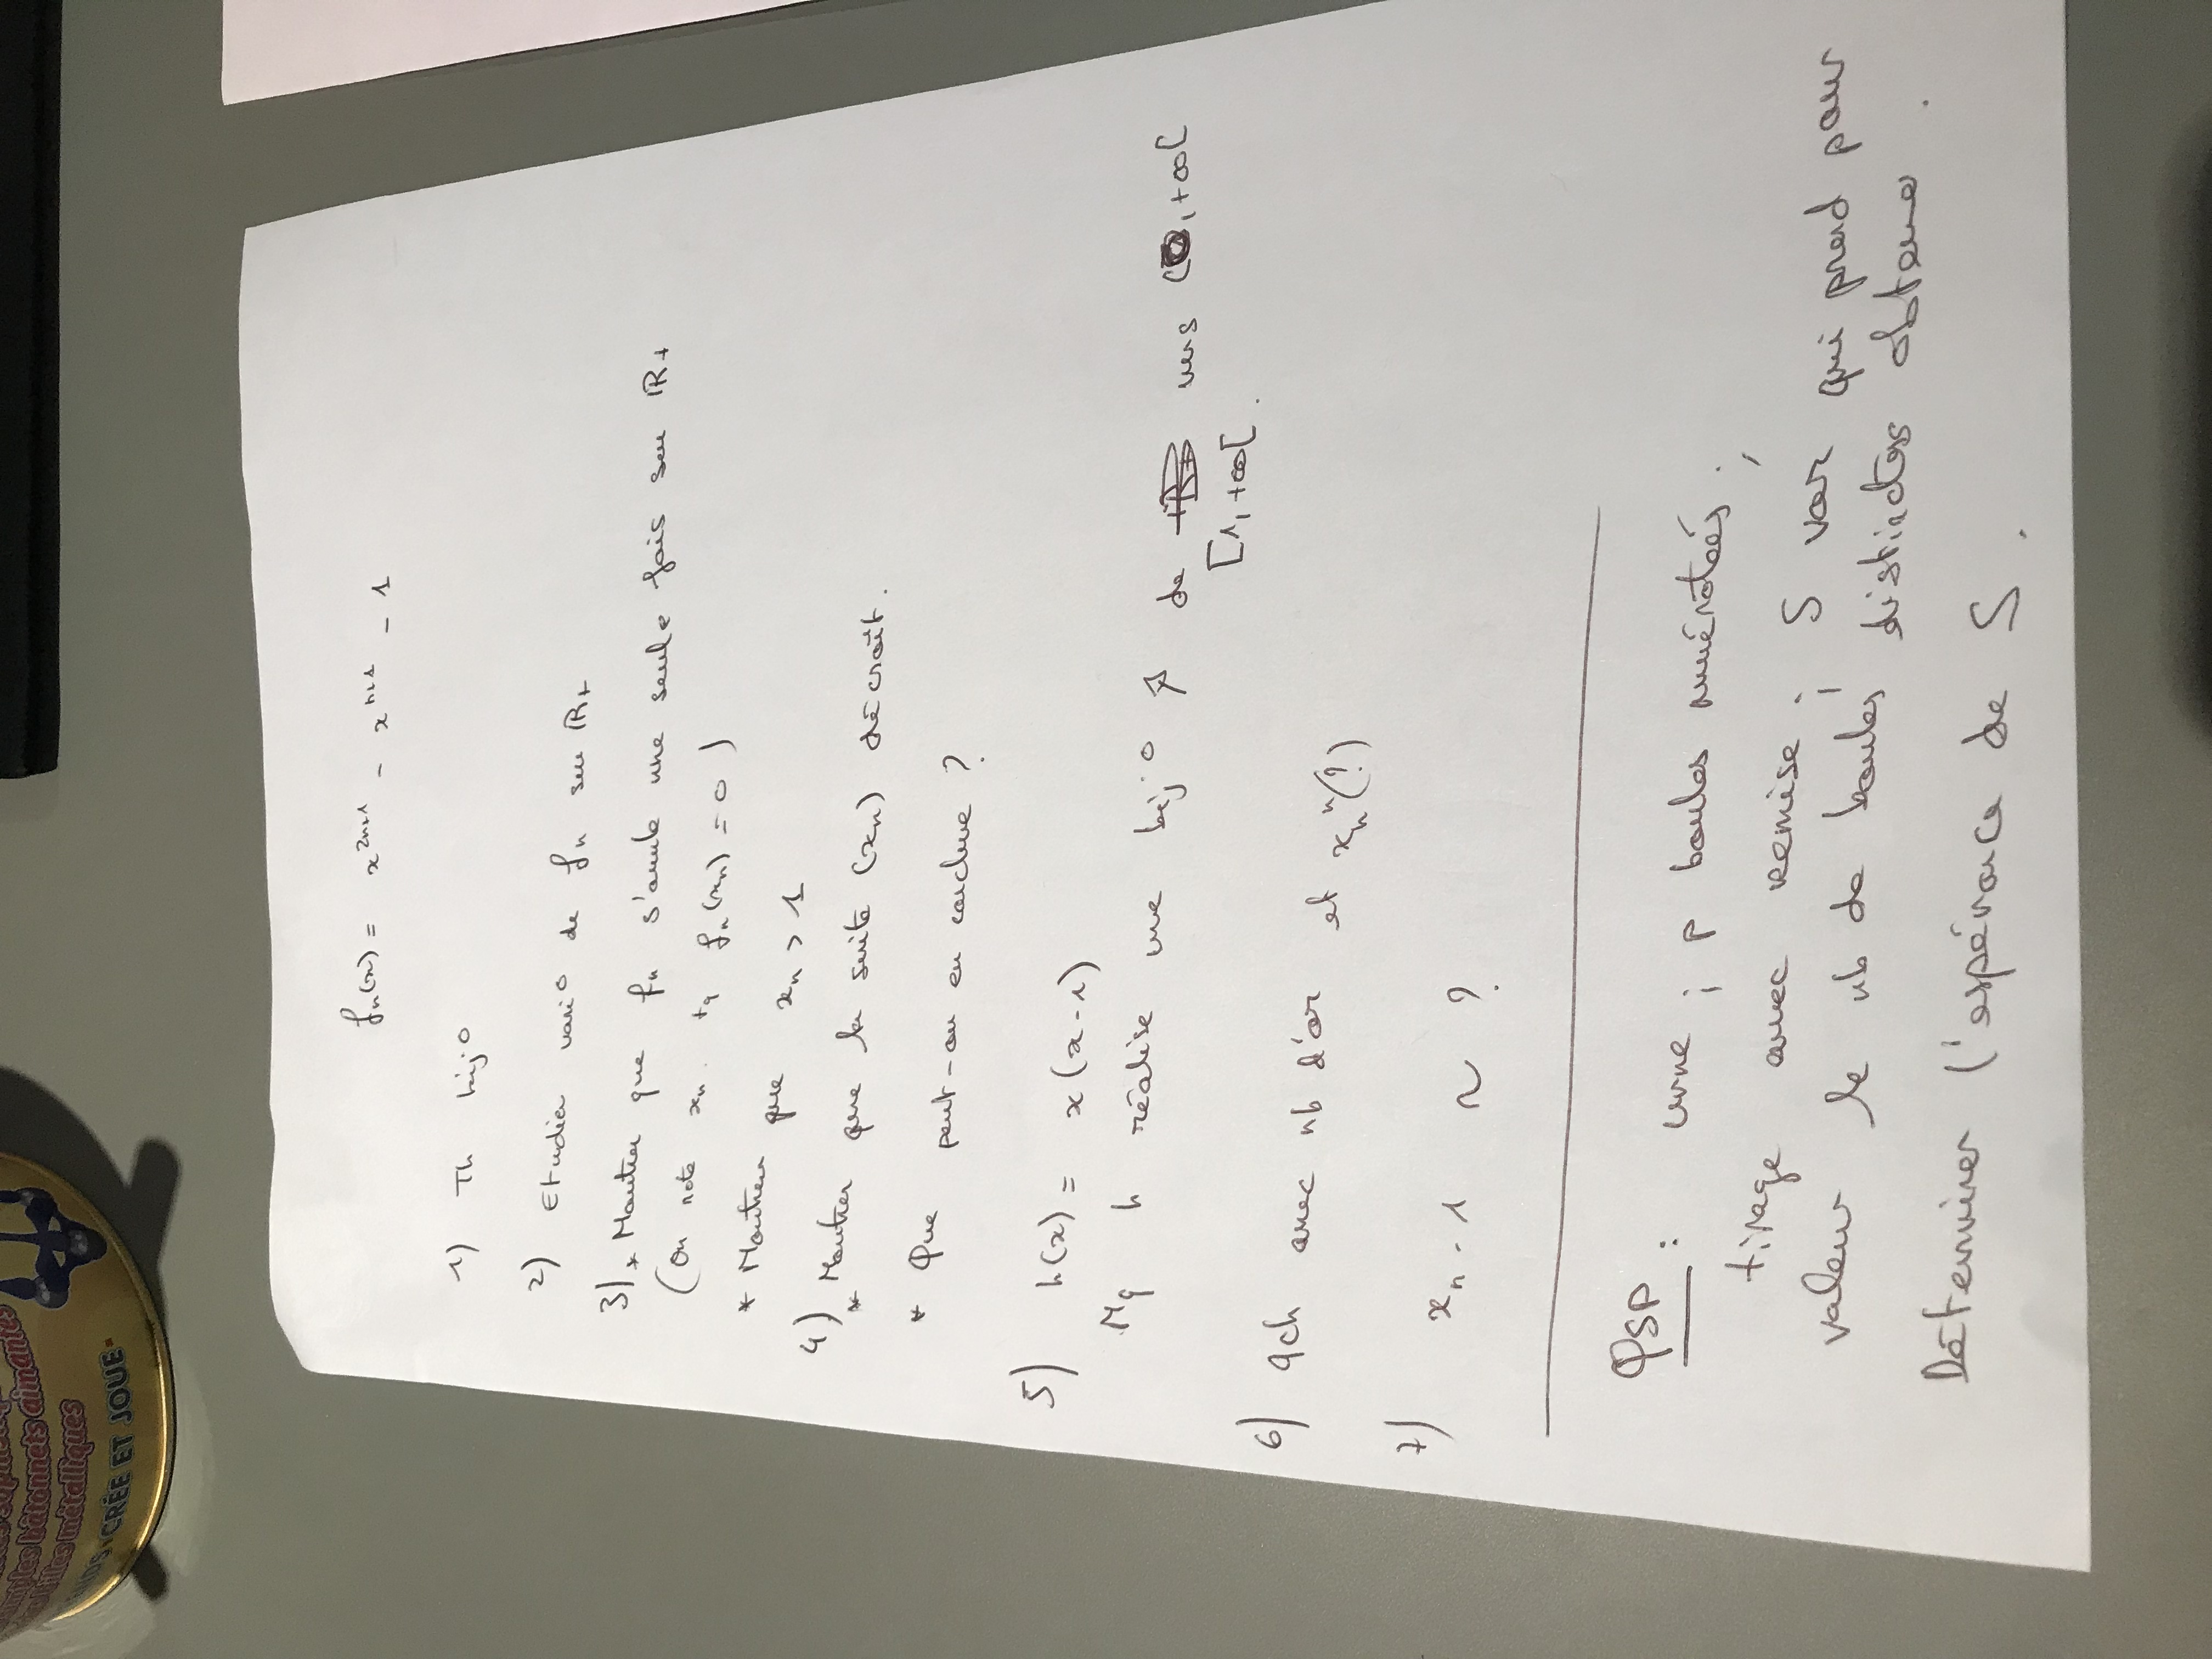 simples bâtonnets aimantés
billes métalliques
"CRÉE ET JOUE"
fn(x) = x^2n+1 - x^n+1 - 1
1) Th bij°
2) Etudier vari° de fn sur R+
3) * Montrer que fn s'annule une seule fois sur R+
(On note xn tq fn(xn) = 0)
* Montrer que xn > 1
4) * Montrer que la suite (xn) décroît.
* Que peut-on en conclure ?
5) h(x) = x(x-1)
Mq h réalise une bij° ↗ de vers [0,+∞[
[1,+∞[.
6) qch avec nb d'or et xn^n (?)
7) xn - 1 ~ ?
QSP : urne ; p boules numérotées ;
tirage avec remise ; S var qui prend pour
valeur le nb de boules distinctes obtenue.
Déterminer l'espérance de S.